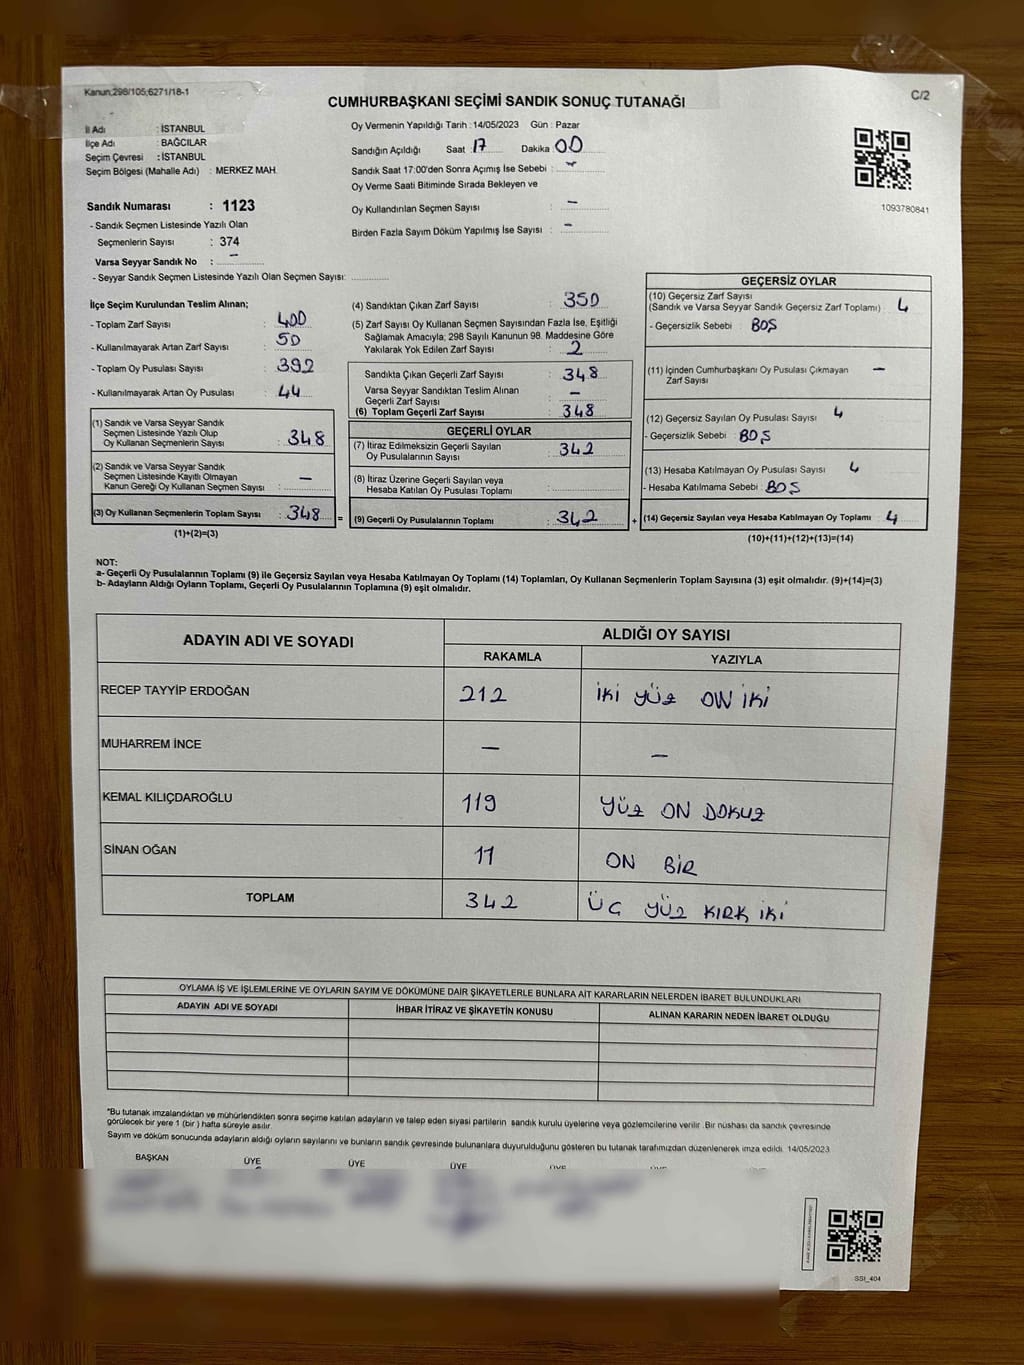 Kanun;298/105;6271/18-1
C/2
CUMHURBAŞKANI SEÇİMİ SANDIK SONUÇ TUTANAĞI
İl Adı : İSTANBUL
İlçe Adı : BAĞCILAR
Seçim Çevresi : İSTANBUL
Seçim Bölgesi (Mahalle Adı) : MERKEZ MAH.
Sandık Numarası : 1123
- Sandık Seçmen Listesinde Yazılı Olan
Seçmenlerin Sayısı : 374
Varsa Seyyar Sandık No : –
- Seyyar Sandık Seçmen Listesinde Yazılı Olan Seçmen Sayısı:
Oy Vermenin Yapıldığı Tarih : 14/05/2023 Gün : Pazar
Sandığın Açıldığı Saat : 17 Dakika : 00
Sandık Saat 17:00'den Sonra Açımış İse Sebebi :
Oy Verme Saati Bitiminde Sırada Bekleyen ve
Oy Kullandırılan Seçmen Sayısı : –
Birden Fazla Sayım Döküm Yapılmış İse Sayısı : –
1093780841
İlçe Seçim Kurulundan Teslim Alınan;
- Toplam Zarf Sayısı : 400
- Kullanılmayarak Artan Zarf Sayısı : 50
- Toplam Oy Pusulası Sayısı : 392
- Kullanılmayarak Artan Oy Pusulası : 44
(1) Sandık ve Varsa Seyyar Sandık
Seçmen Listesinde Yazılı Olup
Oy Kullanan Seçmenlerin Sayısı : 348
(2) Sandık ve Varsa Seyyar Sandık
Seçmen Listesinde Kayıtlı Olmayan
Kanun Gereği Oy Kullanan Seçmen Sayısı : –
(3) Oy Kullanan Seçmenlerin Toplam Sayısı : 348 =
(1)+(2)=(3)
(4) Sandıktan Çıkan Zarf Sayısı : 350
(5) Zarf Sayısı Oy Kullanan Seçmen Sayısından Fazla İse, Eşitliği
Sağlamak Amacıyla; 298 Sayılı Kanunun 98. Maddesine Göre
Yakılarak Yok Edilen Zarf Sayısı : 2
Sandıkta Çıkan Geçerli Zarf Sayısı : 348
Varsa Seyyar Sandıktan Teslim Alınan
Geçerli Zarf Sayısı : –
(6) Toplam Geçerli Zarf Sayısı : 348
GEÇERLİ OYLAR
(7) İtiraz Edilmeksizin Geçerli Sayılan
Oy Pusulalarının Sayısı : 342
(8) İtiraz Üzerine Geçerli Sayılan veya
Hesaba Katılan Oy Pusulası Toplamı :
(9) Geçerli Oy Pusulalarının Toplamı : 342 +
GEÇERSİZ OYLAR
(10) Geçersiz Zarf Sayısı
(Sandık ve Varsa Seyyar Sandık Geçersiz Zarf Toplamı) : 4
- Geçersizlik Sebebi : BOŞ
(11) İçinden Cumhurbaşkanı Oy Pusulası Çıkmayan : –
Zarf Sayısı
(12) Geçersiz Sayılan Oy Pusulası Sayısı : 4
- Geçersizlik Sebebi : BOŞ
(13) Hesaba Katılmayan Oy Pusulası Sayısı : 4
- Hesaba Katılmama Sebebi : BOŞ
(14) Geçersiz Sayılan veya Hesaba Katılmayan Oy Toplamı : 4
(10)+(11)+(12)+(13)=(14)
NOT:
a- Geçerli Oy Pusulalarının Toplamı (9) ile Geçersiz Sayılan veya Hesaba Katılmayan Oy Toplamı (14) Toplamları, Oy Kullanan Seçmenlerin Toplam Sayısına (3) eşit olmalıdır. (9)+(14)=(3)
b- Adayların Aldığı Oyların Toplamı, Geçerli Oy Pusulalarının Toplamına (9) eşit olmalıdır.
ADAYIN ADI VE SOYADI ALDIĞI OY SAYISI
RAKAMLA YAZIYLA
RECEP TAYYİP ERDOĞAN 212 İKİ YÜZ ON İKİ
MUHARREM İNCE – –
KEMAL KILIÇDAROĞLU 119 YÜZ ON DOKUZ
SİNAN OĞAN 11 ON BİR
TOPLAM 342 ÜÇ YÜZ KIRK İKİ
OYLAMA İŞ VE İŞLEMLERİNE VE OYLARIN SAYIM VE DÖKÜMÜNE DAİR ŞİKAYETLERLE BUNLARA AİT KARARLARIN NELERDEN İBARET BULUNDUKLARI
ADAYIN ADI VE SOYADI İHBAR İTİRAZ VE ŞİKAYETİN KONUSU ALINAN KARARIN NEDEN İBARET OLDUĞU
*Bu tutanak imzalandıktan ve mühürlendikten sonra seçime katılan adayların ve talep eden siyasi partilerin sandık kurulu üyelerine veya gözlemcilerine verilir .Bir nüshası da sandık çevresinde
görülecek bir yere 1 (bir ) hafta süreyle asılır.
Sayım ve döküm sonucunda adayların aldığı oyların sayılarını ve bunların sandık çevresinde bulunanlara duyurulduğunu gösteren bu tutanak tarafımızdan düzenlenerek imza edildi. 14/05/2023
BAŞKAN ÜYE ÜYE ÜYE
SSI_404